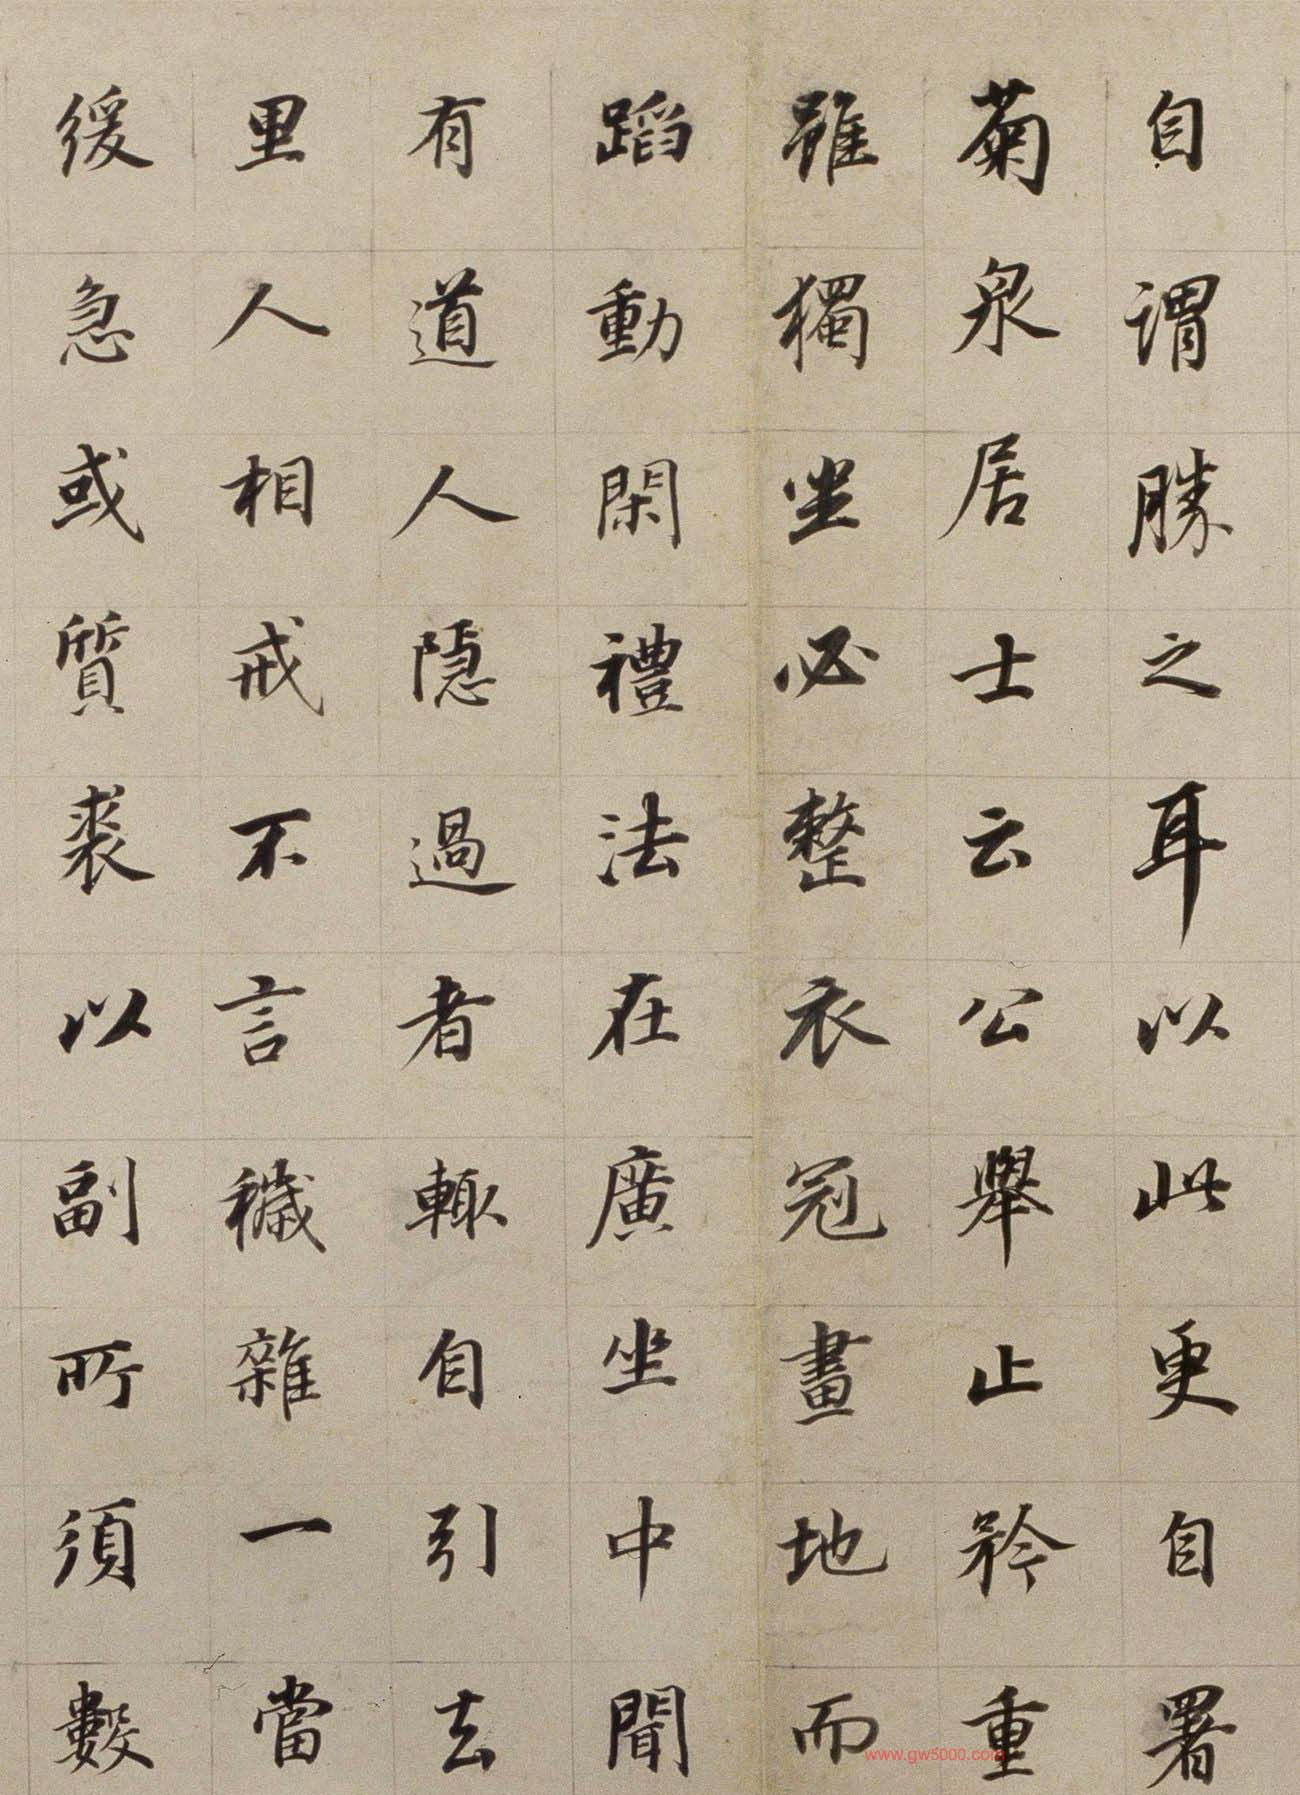 自謂勝之耳以此更自署
菊泉居士云公舉止矜重
雖獨坐必整衣冠畫地而
蹈動閑禮法在廣坐中聞
有道人隱過者輒自引去
里人相戒不言穢雜一當
緩急或質裘以副所須數
www.gw5000.com